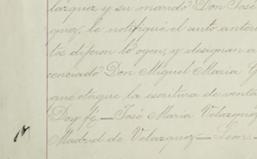 lazquez y su marido Don José
quez, le notifiqué el auto anteri
tos dijeron lo oyen, y designan a
cenciado Don Miguel Maria G
que otorgue la escritura de venta
Doy fé — José Maria Velazquez
Madrid de Velazquez —